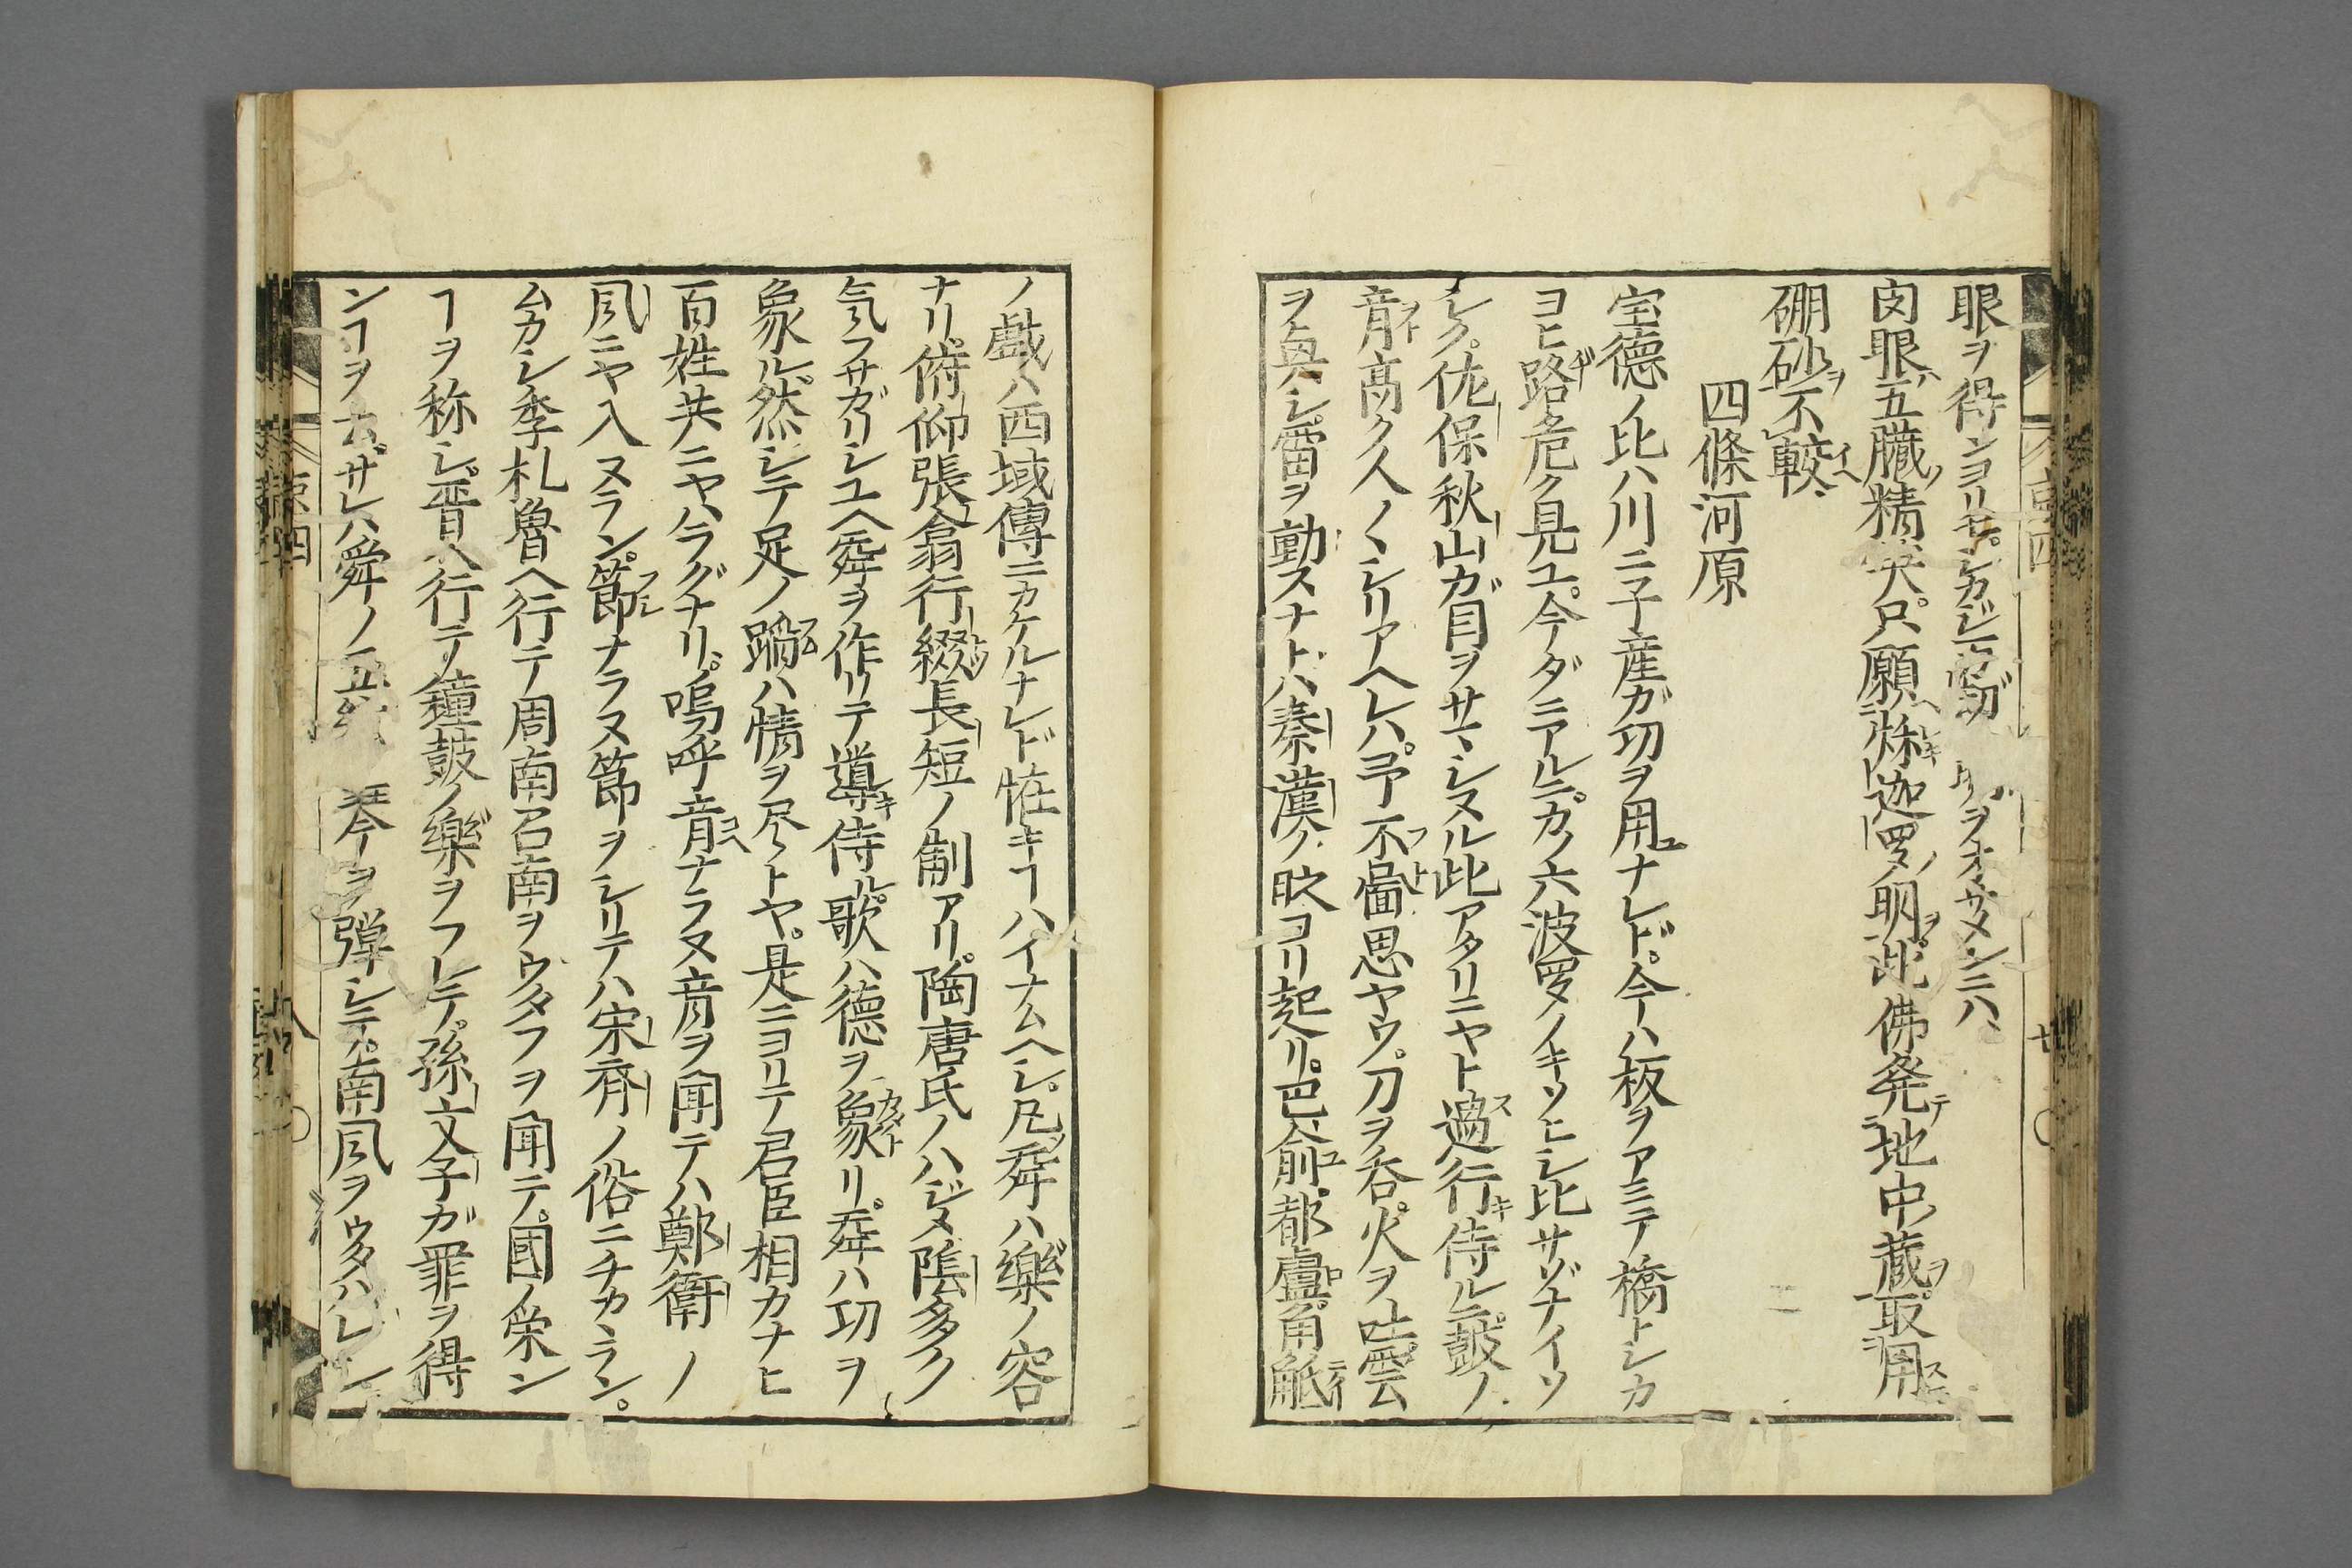 眼ヲ得ンヨリモ。シカジ
肉眼ハ五臓ノ精 只願ハ 迦羅ノ明ヲ。此佛発テ地中ノ蔵ヲ。取用
硼砂ヲ不較
四條河原
宝徳ノ比ハ川ニ子産ガ功ヲ用ユナレド。今ハ板ヲアミテ橋トシカ
ヨヒ路危ク見ユ。今ダニアルニ。カノ六波羅ノキソヒシ比サゾナイソ
シク。佐保秋山ガ目ヲサマシヌル此アタリニヤト過行侍ルニ。鼓ノ
音高ク人ノノシリアヘレハ。予不啚思ヤウ。刀ヲ呑。火ヲ吐。雲
ヲ興シ。雷ヲ動スナトハ秦漢ノ ヨリ起レリ。巴俞都盧。角觝
ノ戯ハ西域傳ニカケルナレド恠キヿハイナムヘシ。凡舜ハ樂ノ容
ナリ。俯仰張翕行綴長短ノ制アリ。陶唐氏ノハジメ陰多ク
気フサガリシユヘ舜ヲ作リテ導キ侍ル。歌ハ德ヲ象リ。舜ハ功ヲ
象ル。然シテ足ノ蹈ハ情ヲ尽トヤ。是ニヨリテ君臣相カナヒ
百姓共ニヤハラグナリ。嗚呼音ナラヌ音ヲ聞テハ鄭衛ノ
風ニヤ入ヌラン。節ナラヌ節ヲシリテハ宋齊ノ俗ニチカヽラン。
ムカシ季札魯ヘ行テ周南召南ヲウタフヲ聞テ。國ノ栄ン
ヿヲ称シ。晋ヘ行テ鐘鼓ノ樂ヲフレテ。孫文子ガ罪ヲ得
ンヿヲ云。サレハ舜ノ五絃 琴ヲ彈シテ。南風ヲウタハレシ